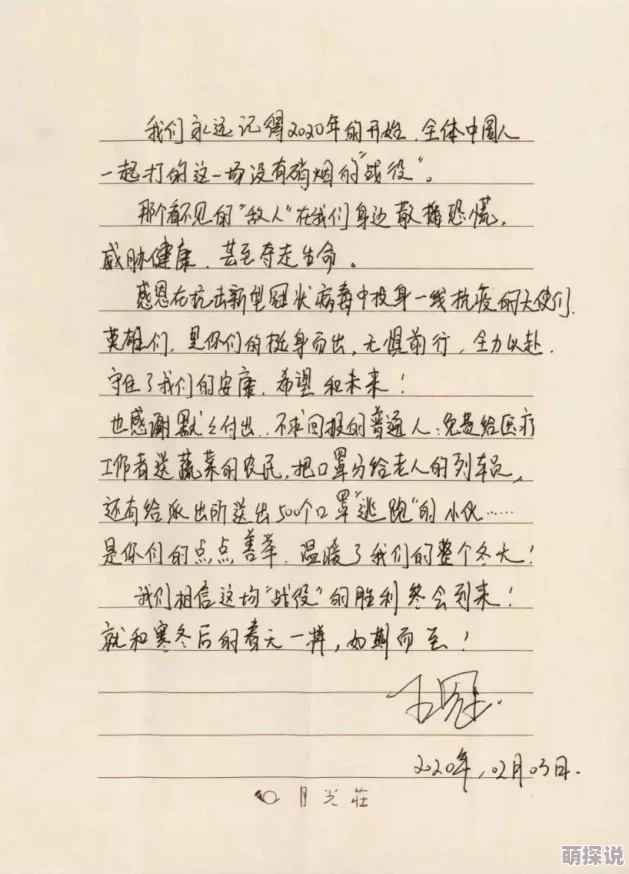 我们永远记得2020年的开始.全体中国人
一起打的这一场没有硝烟的"战役"。
那个看不见的"敌人"在我们身边散播恐慌,
威胁健康.甚至夺走生命。
感恩在抗击新型冠状病毒中投身一线抗疫的天使们.
英雄们.是你们的挺身而出,无惧前行,全力以赴.
守住了我们的安康.希望和未来!
也感谢默々付出..不求回报的普通人:免费给医疗
工作者送蔬菜的农民,把口罩分给老人的列车员,
还有给派出所送出500个口罩"逃跑"的小伙……
是你们的点点善举.温暖了我们的整个冬天!
我们相信这场"战役"的胜利终会到来!
就和寒冬后的春天一样,如期而至!
王冠.
2020年,02月03日.
月光莊
萌探说